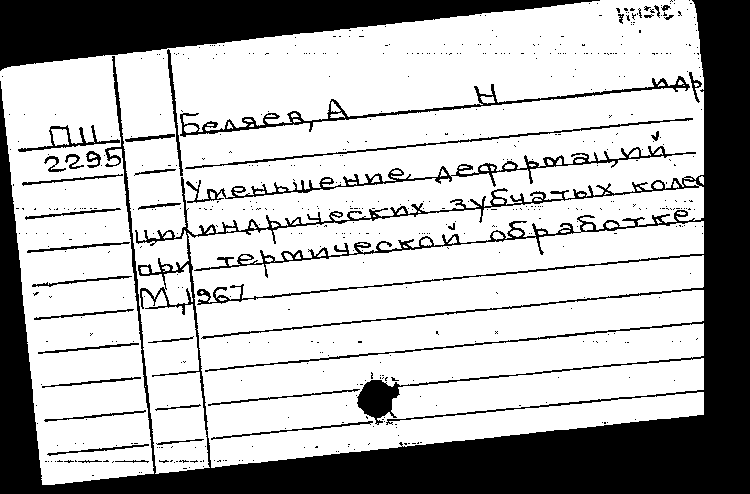 П11 Беляев, А Н идр
2295
Уменьшение деформаций
цилиндрических зубчатых колес
при термической обработке
М., 1967.